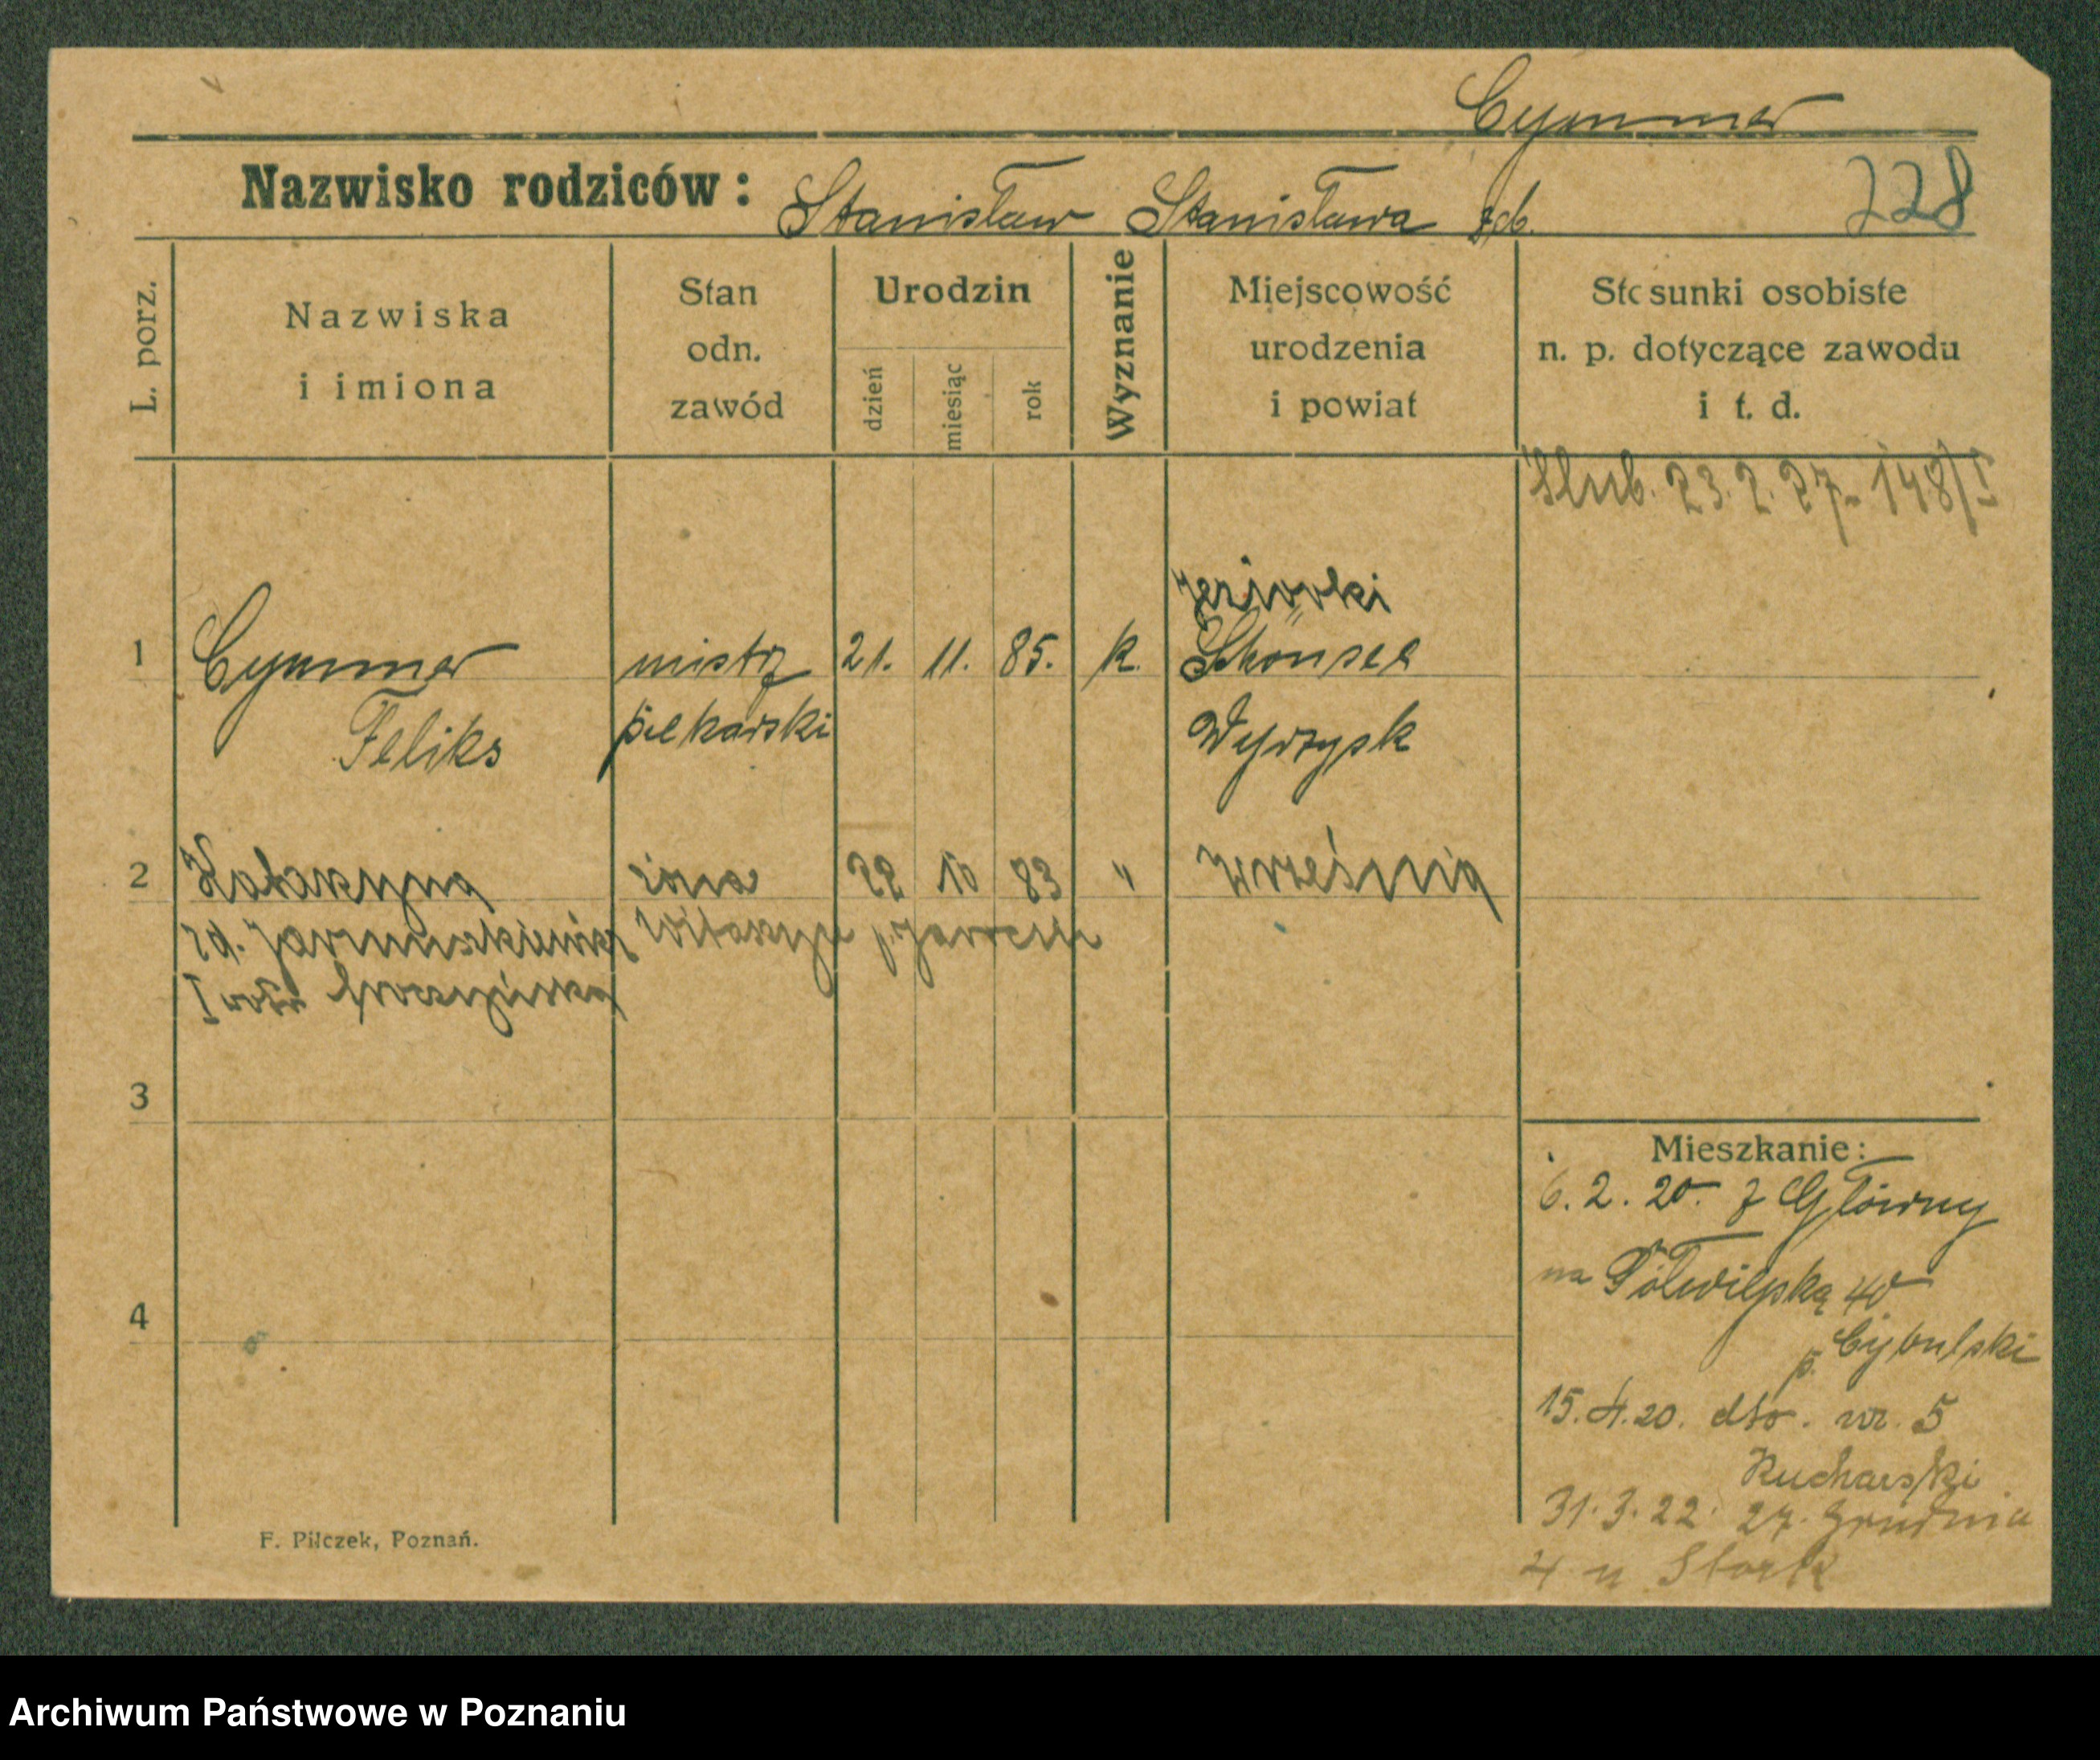 Cymmer
Nazwisko rodziców: Stanisław Stanisława zd.
228
L. porz.
Nazwiska
i imiona
Stan
odn.
zawód
Urodzin
dzień
miesiąc
rok
Wyznanie
Miejscowość
urodzenia
i powiat
Stosunki osobiste
n. p. dotyczące zawodu
i t. d.
ślub. 23. 2. 27. 148/I
Jeziorki
1 Cymmer mistrz 21. 11. 85. k. Schönsee
Feliks piekarski Wyrzysk
2 Katarzyna żona 22 10 83 " Września
zd. Witaszyce p. Jarocin
I
3
Mieszkanie:
6. 2. 20. z Główny
na Półwiejską 40
4
p. Cybulski
15. 4. 20. dto. nr. 5
Kucharski
31. 3. 22. 27. Grudnia
4 u Stark
F. Pilczek, Poznań.
Archiwum Państwowe w Poznaniu